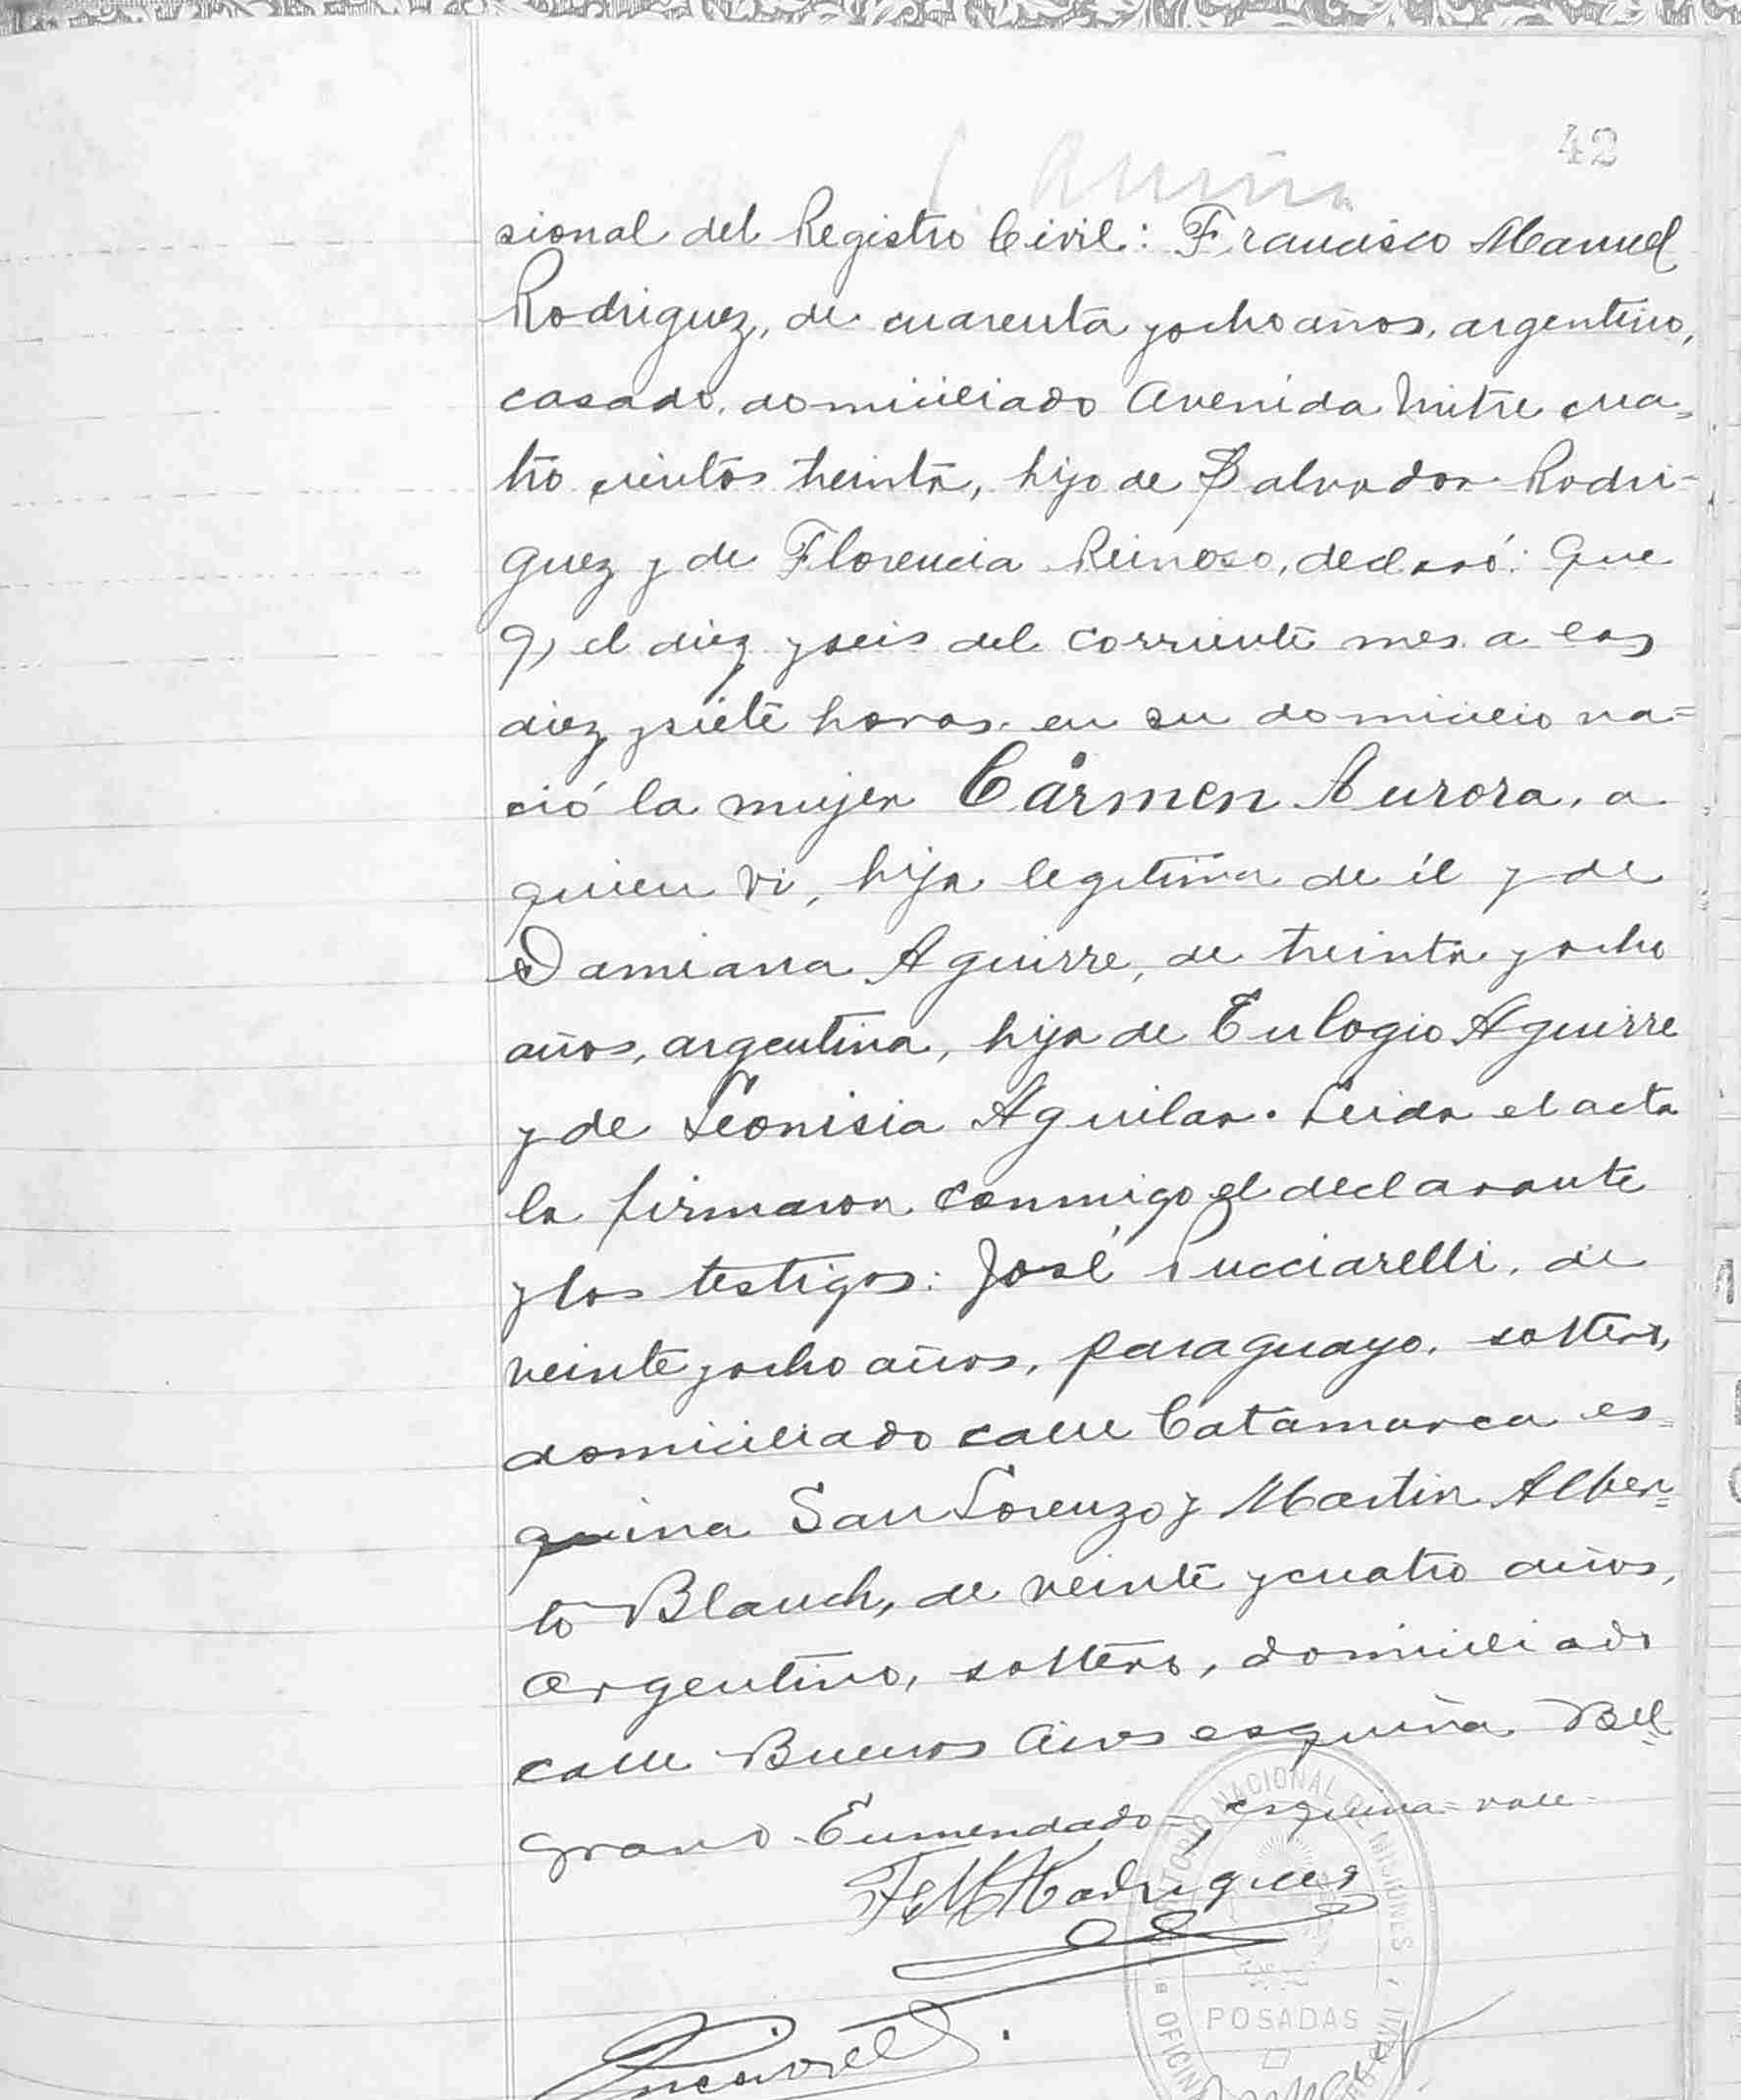 42
sional del Registro Civil: Francisco Manuel
Rodriguez, de cuarenta y ocho años, argentino,
casado, domiciliado Avenida Mitre cua=
tro cientos treinta, hijo de Salvador Rodri-
guez y de Florencia Reinoso, declaró: Que
el diez y seis del corriente mes a las
diez y siete horas en su domicilio na=
ció la mujer Cármen Aurora, a
quien vi, hija legitima de él y de
Damiana Aguirre, de treinta y ocho
años, argentina, hija de Eulogio Aguirre
y de Leonisia Aguilar. Leida el acta
la firmaron conmigo el declarante
y los testigos: José Pucciarelli, de
veinte y ocho años, paraguayo, soltero,
domiciliado calle Catamarca es=
quina San Lorenzo y Martin Alber=
to Blanch, de veinte y cuatro años,
argentino, soltero, domiciliado
calle Buenos Aires esquina Bel
grano - Enmendado - esquina = vale =
F M Rodriguez
TERRITORIO NACIONAL DE MISIONES
POSADAS